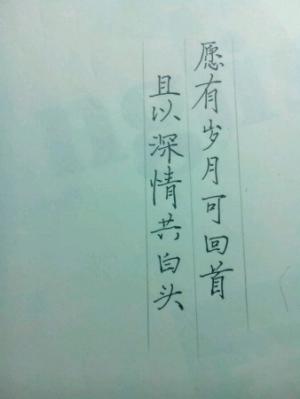 愿有岁月可回首
且以深情共白头